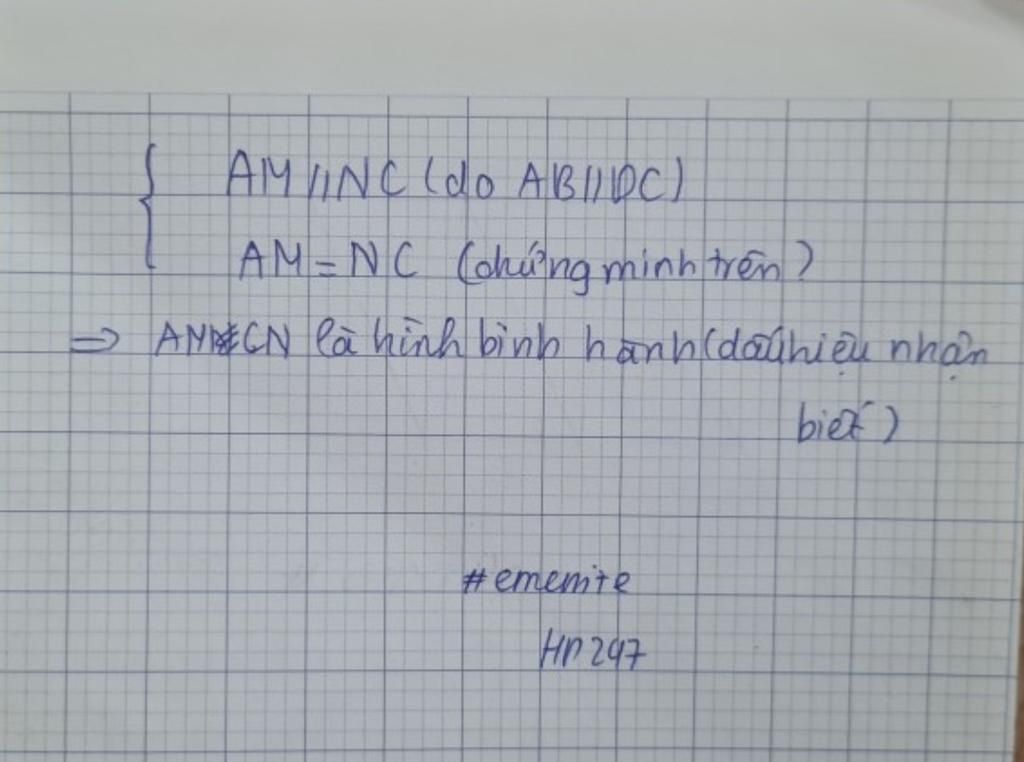 { AM//NC (do AB//DC)
AM = NC (chứng minh trên)
=> AMCN là hình bình hành (dấu hiệu nhận
biết)
#ememite
Hn247